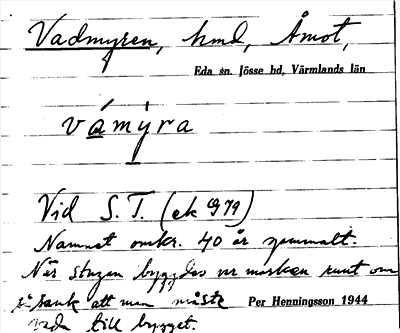 Vadmyren, hmd, Åmot,
Eda sn. Jösse hd, Värmlands län
vámýra
Vid S. T. (ek G79)
Namnet omkr. 40 år gammalt.
När stugan byggdes var marken runt om
så sank att man måste Per Henningsson 1944
vada till bygget.